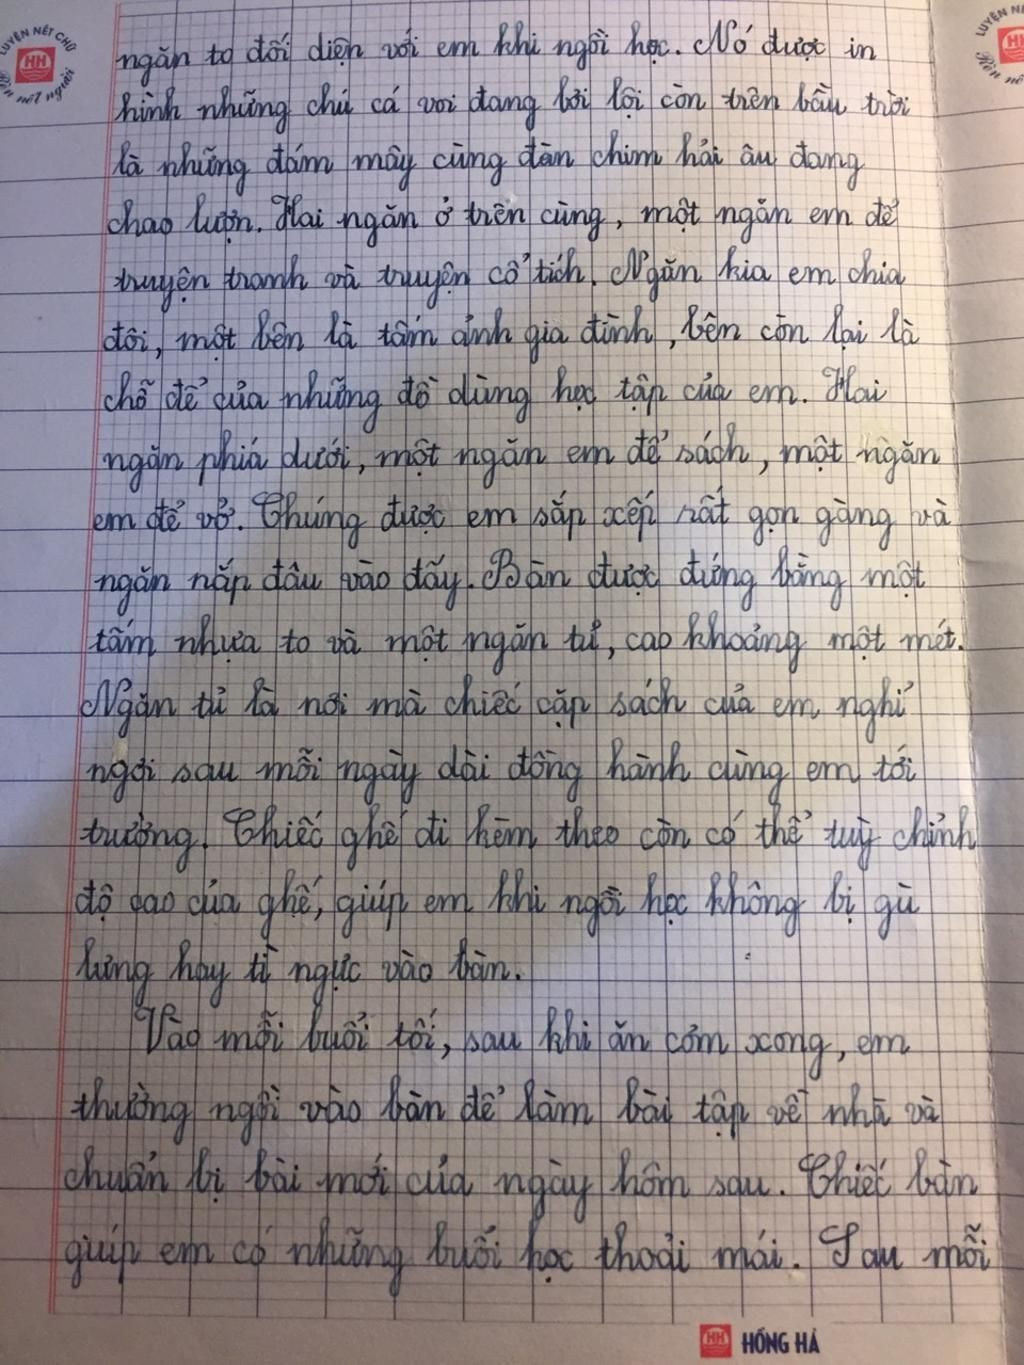 LUYỆN NÉT CHỮ
HH
Rèn nết người
LUYỆN NÉ
ngăn to đối diện với em khi ngồi học. Nó được in
hình những chú cá voi đang bơi lội còn trên bầu trời
là những đám mây cùng đàn chim hải âu đang
chao lượn. Hai ngăn ở trên cùng, một ngăn em để
truyện tranh và truyện cổ tích. Ngăn kia em chia
đôi, một bên là tấm ảnh gia đình, bên còn lại là
chỗ để của những đồ dùng học tập của em. Hai
ngăn phiá dưới, một ngăn em để sách, một ngăn
em để vở. Chúng được em sắp xếp rất gọn gàng và
ngăn nắp đâu vào đấy. Bàn được đứng bằng một
tấm nhựa to và một ngăn tủ, cao khoảng một mét.
Ngăn tủ là nơi mà chiếc cặp sách của em nghỉ
ngơi sau mỗi ngày dài đồng hành cùng em tới
trường. Chiếc ghế đi kèm theo còn có thể tuỳ chỉnh
độ cao của ghế, giúp em khi ngồi học không bị gù
lưng hay tì ngực vào bàn.
Vào mỗi buổi tối, sau khi ăn cơm xong, em
thường ngồi vào bàn để làm bài tập về nhà và
chuẩn bị bài mới của ngày hôm sau. Chiếc bàn
giúp em có những buổi học thoải mái. Sau mỗi
HH HỒNG HÀ